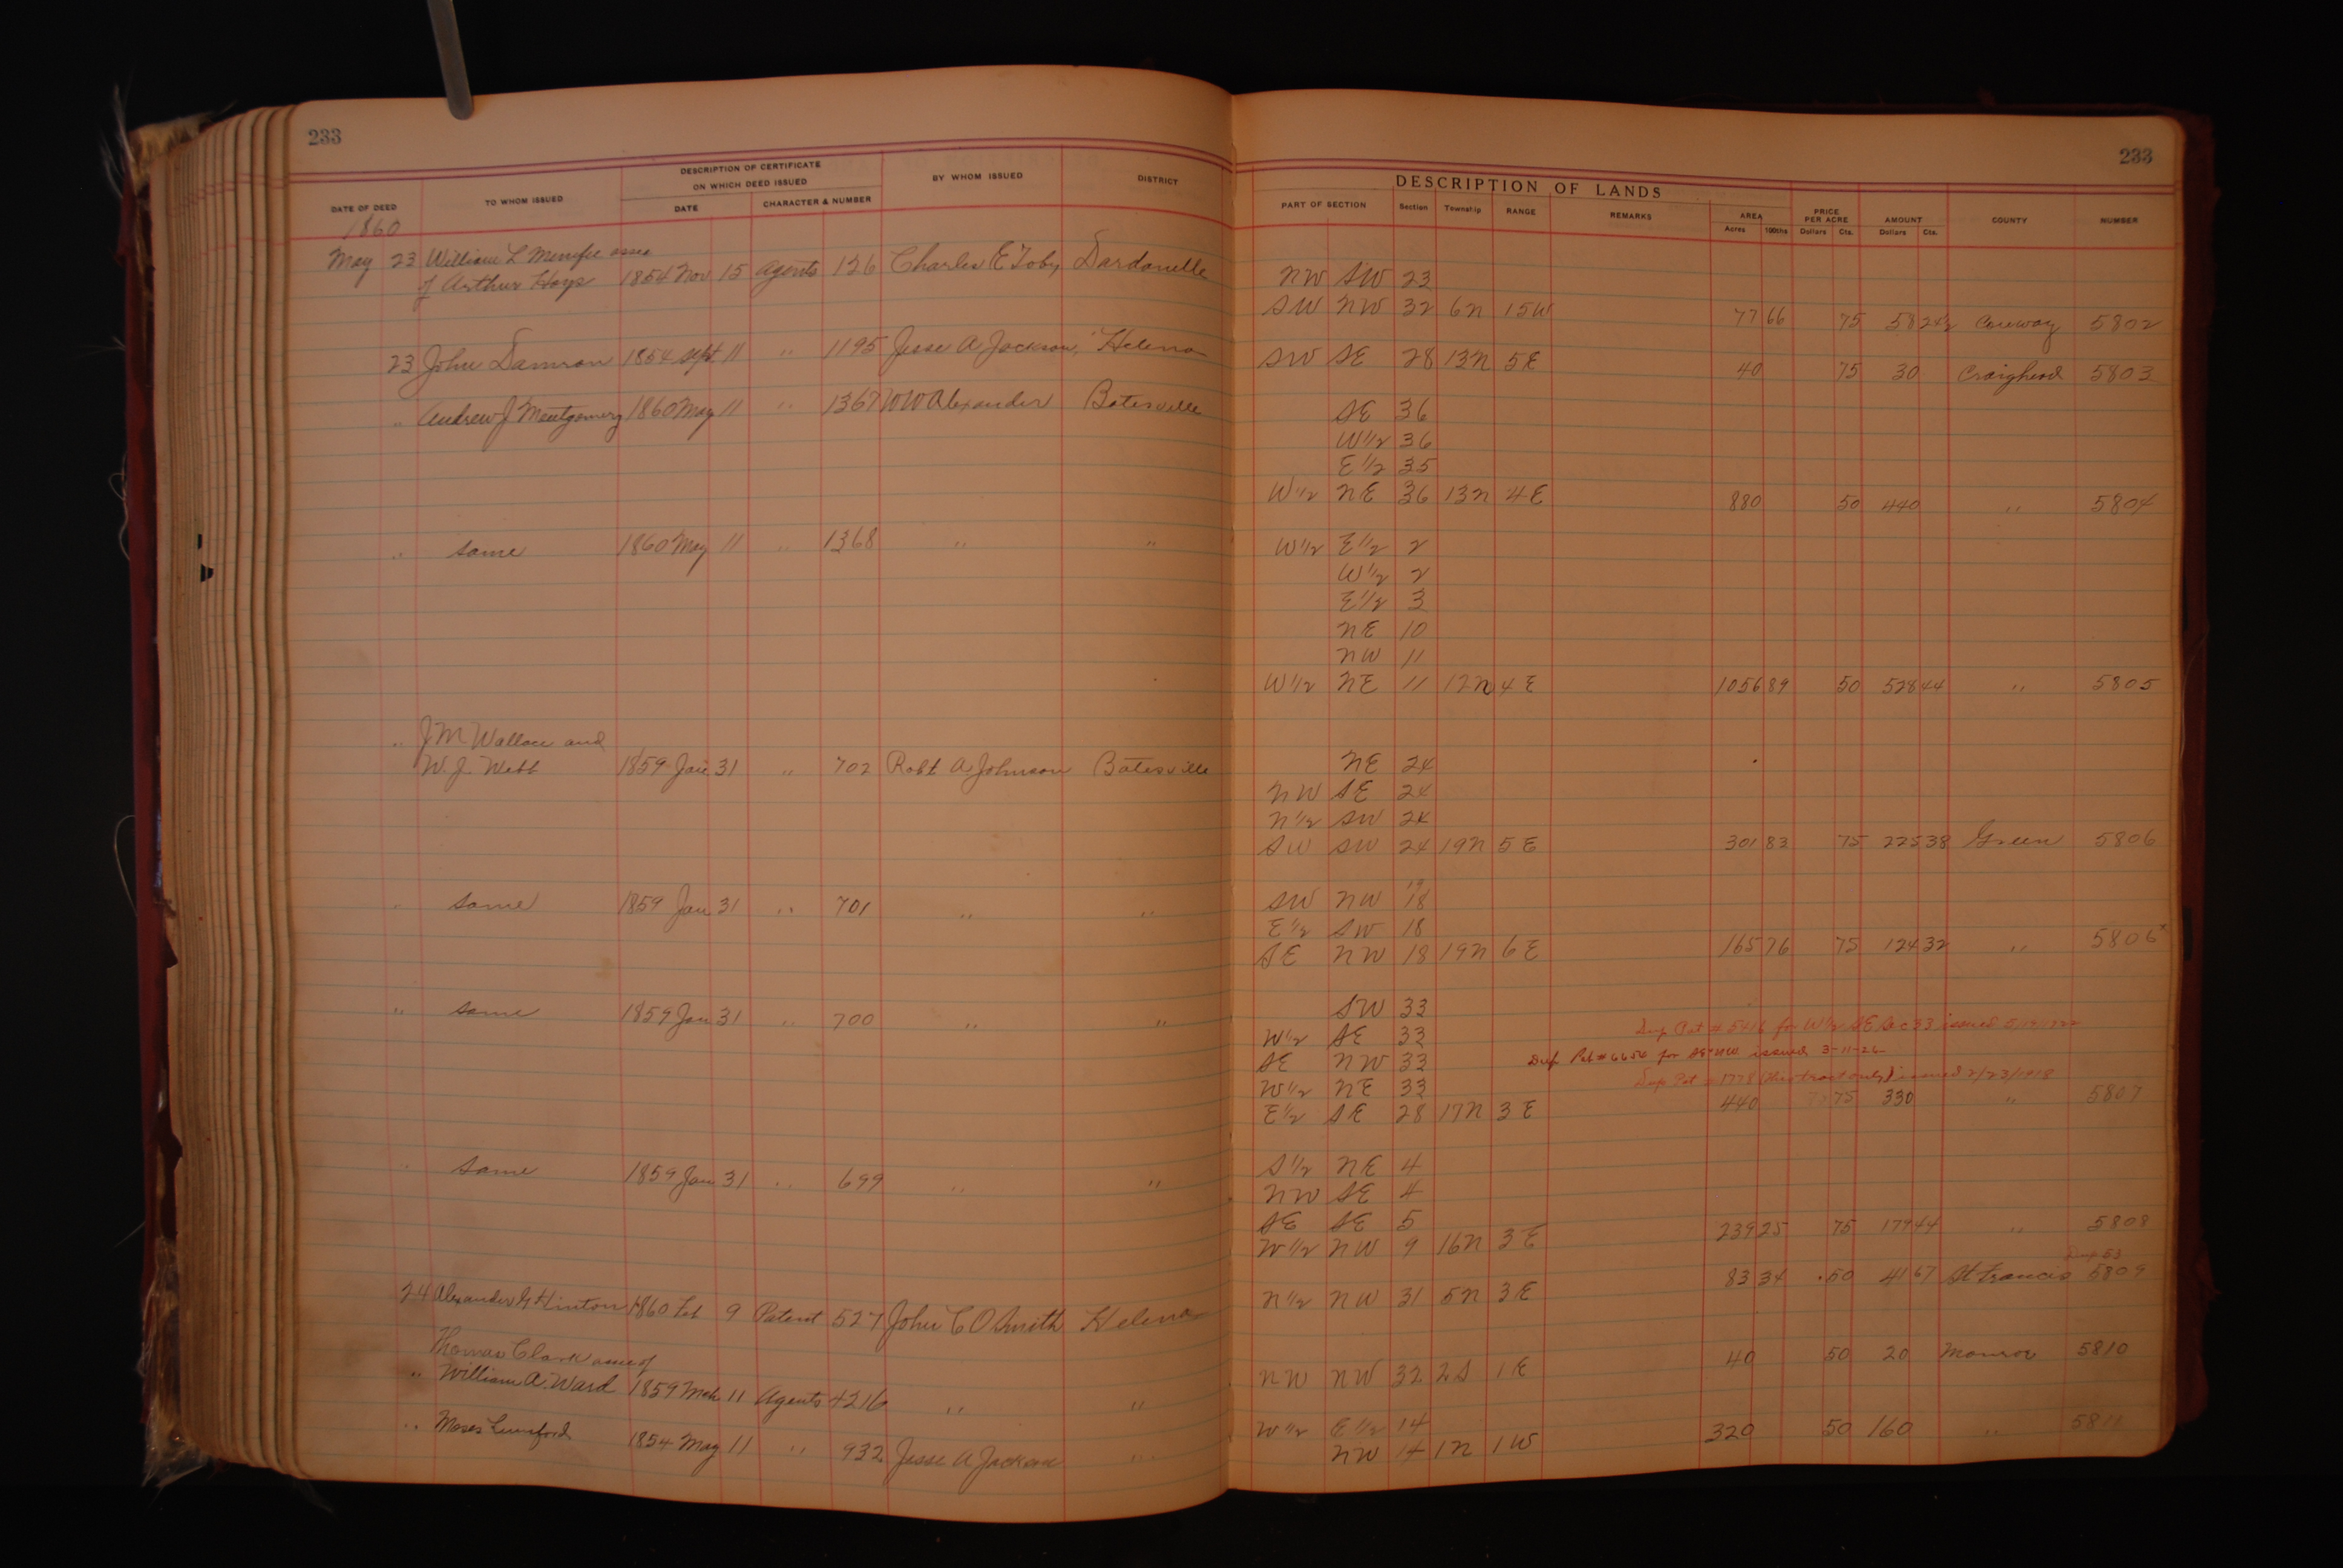 233
DESCRIPTION OF CERTIFICATE
ON WHICH DEED ISSUED
BY WHOM ISSUED
DISTRICT
DATE OF DEED
TO WHOM ISSUED
DATE
CHARACTER & NUMBER
1860
May 23 William L Menifee assee
of Arthur Hays 1854 Nov 15 Agents 126 Charles E Toby Dardanelle
23 John Damron 1854 Sept 11 " 1195 Jesse A Jackson, Helena
" Andrew J Montgomery 1860 May 11 " 1367 W W Alexander Batesville
" Same 1860 May 11 " 1368 " "
" J M Wallace and
W. J. Webb 1859 Jan 31 " 702 Robt A Johnson Batesville
" Same 1859 Jan 31 " 701 " "
" Same 1859 Jan 31 " 700 " "
" Same 1859 Jan 31 " 699 " "
24 Alexander G Hinton 1860 Feb 9 Patent 527 John C O Smith Helena
Thomas Clark assee of
" William A. Ward 1859 Mch 11 Agents 4216 " "
" Moses Lunsford 1854 May 11 " 932 Jesse A Jackson "
233
DESCRIPTION OF LANDS
PART OF SECTION
Section
Township
RANGE
REMARKS
AREA
Acres 100ths
PRICE
PER ACRE
Dollars Cts.
AMOUNT
Dollars Cts.
COUNTY
NUMBER
NW SW 23
SW NW 32 6N 15W 77 66 75 58 24½ Conway 5802
SW SE 28 13N 5E 40 75 30 Craighead 5803
SE 36
W1/2 36
E1/2 35
W1/2 NE 36 13N 4E 880 50 440 " 5804
W1/2 E1/2 2
W1/2 2
E1/2 3
NE 10
NW 11
W1/2 NE 11 12N 4E 1056 89 50 528 44 " 5805
NE 24
NW SE 24
N1/2 SW 24
SW SW 24 19N 5E 301 83 75 225 38 Green 5806
19
SW NW 18
E1/2 SW 18
SE NW 18 19N 6E 165 76 75 124 32 " 5806
SW 33
W1/2 SE 33 Dup Pat # 5416 for W1/2 SE Sec 33 issued
SE NW 33 Dup. Pat # 6654 for SE NW issued 3-11-26
W1/2 NE 33 Dup Pat # 1778 (this tract only) issued 2/23/1918
E1/2 SE 28 17N 3E 440 75 330 " 5807
S1/2 NE 4
NW SE 4
SE SE 5
W1/2 NW 9 16N 3E 239 25 75 179 44 " 5808
Dup 53
N1/2 NW 31 5N 3E 83 34 .50 41 67 St Francis 5809
NW NW 32 2S 1E 40 50 20 Monroe 5810
W1/2 E1/2 14
NW 14 1N 1W 320 50 160 " 5811